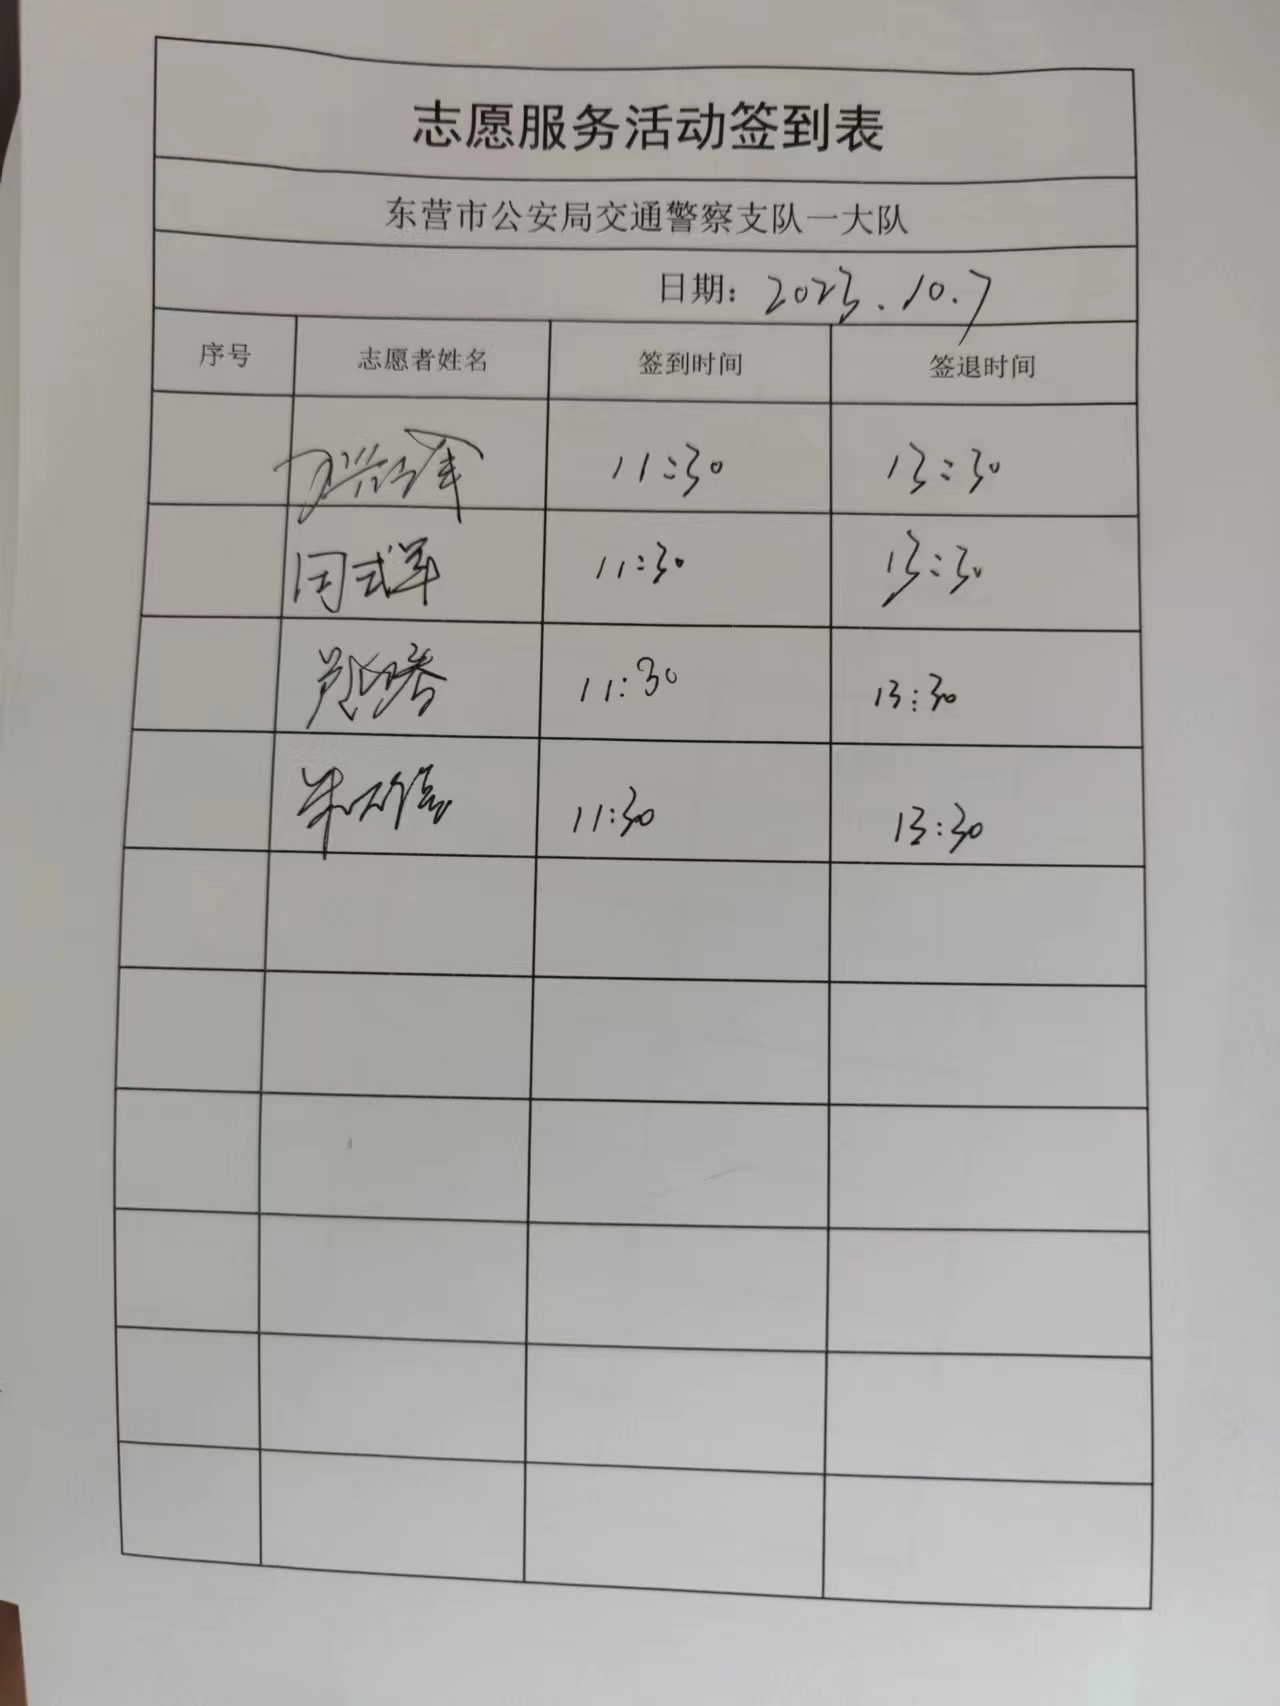 志愿服务活动签到表
东营市公安局交通警察支队一大队
日期：2023.10.7
序号 志愿者姓名 签到时间 签退时间
11:30 13:30
闫式军 11:30 13:30
11:30 13:30
11:30 13:30